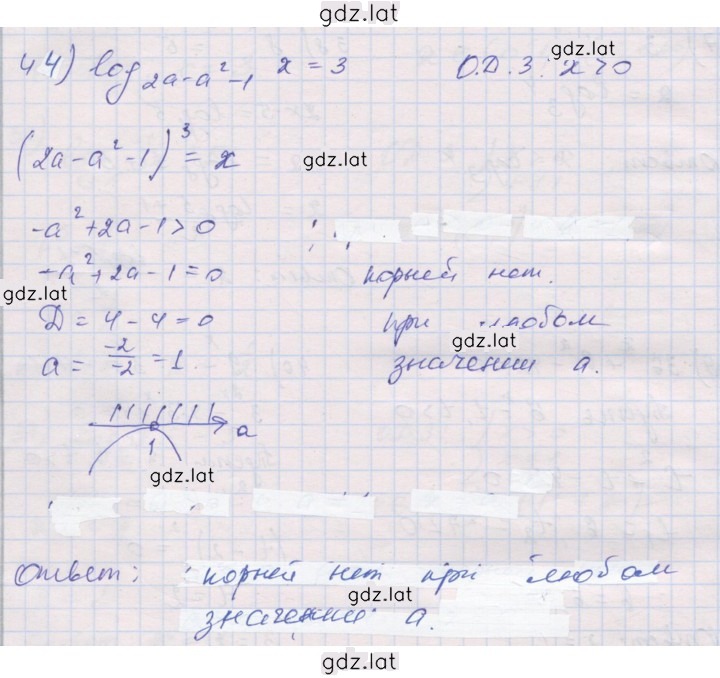 gdz.lat
44) log 2a-a²-1 x = 3 О.Д.З: x>0
gdz.lat
(2a-a²-1)³ = x
gdz.lat
-a²+2a-1>0
-a²+2a-1=0 корней нет.
gdz.lat
Д = 4-4=0 при любом
gdz.lat
a = -2/-2 = 1. значении a.
a
1
gdz.lat
Ответ: корней нет при любом
gdz.lat
значении a.
gdz.lat